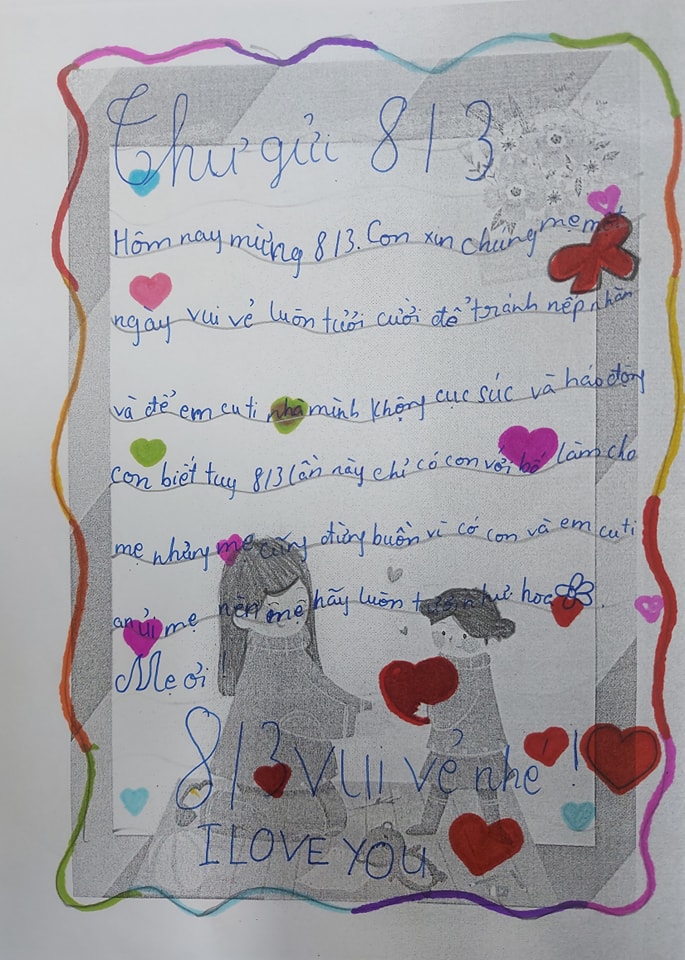 Thư gửi 8/3
Hôm nay mừng 8/3. Con xin chúng mẹ một
ngày vui vẻ luôn tưởi cười để tránh nếp nhăn
và để em cu ti nhà mình không cục súc và háo động
con biết tuy 8/3 lần này chỉ có con với bố làm cho
mẹ nhưng mẹ cũng đừng buồn vì có con và em cu ti
an ủi mẹ nên mẹ hãy luôn tươi như hoa
Mẹ ơi !
8/3 vui vẻ nhé !
I LOVE YOU